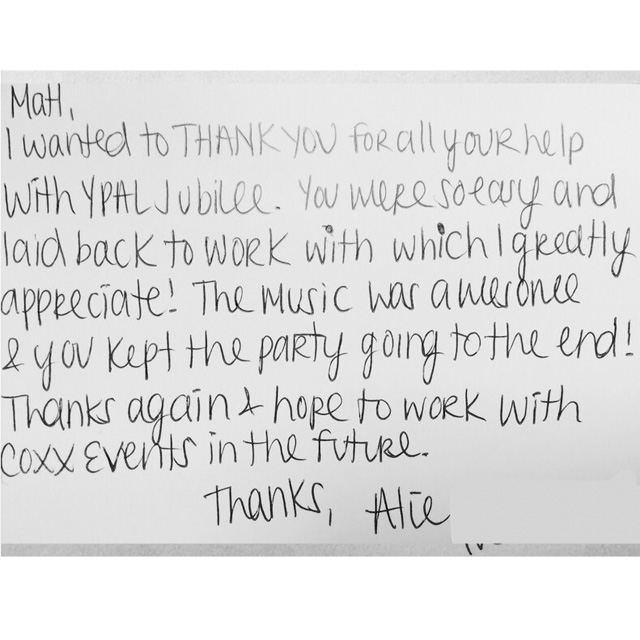 Matt,
I wanted to THANK YOU for all your help
with YPAL Jubilee. You were so easy and
laid back to work with which I greatly
appreciate! The music was awesome
& you kept the party going to the end!
Thanks again & hope to work with
Coxx Events in the future.
Thanks, Alie